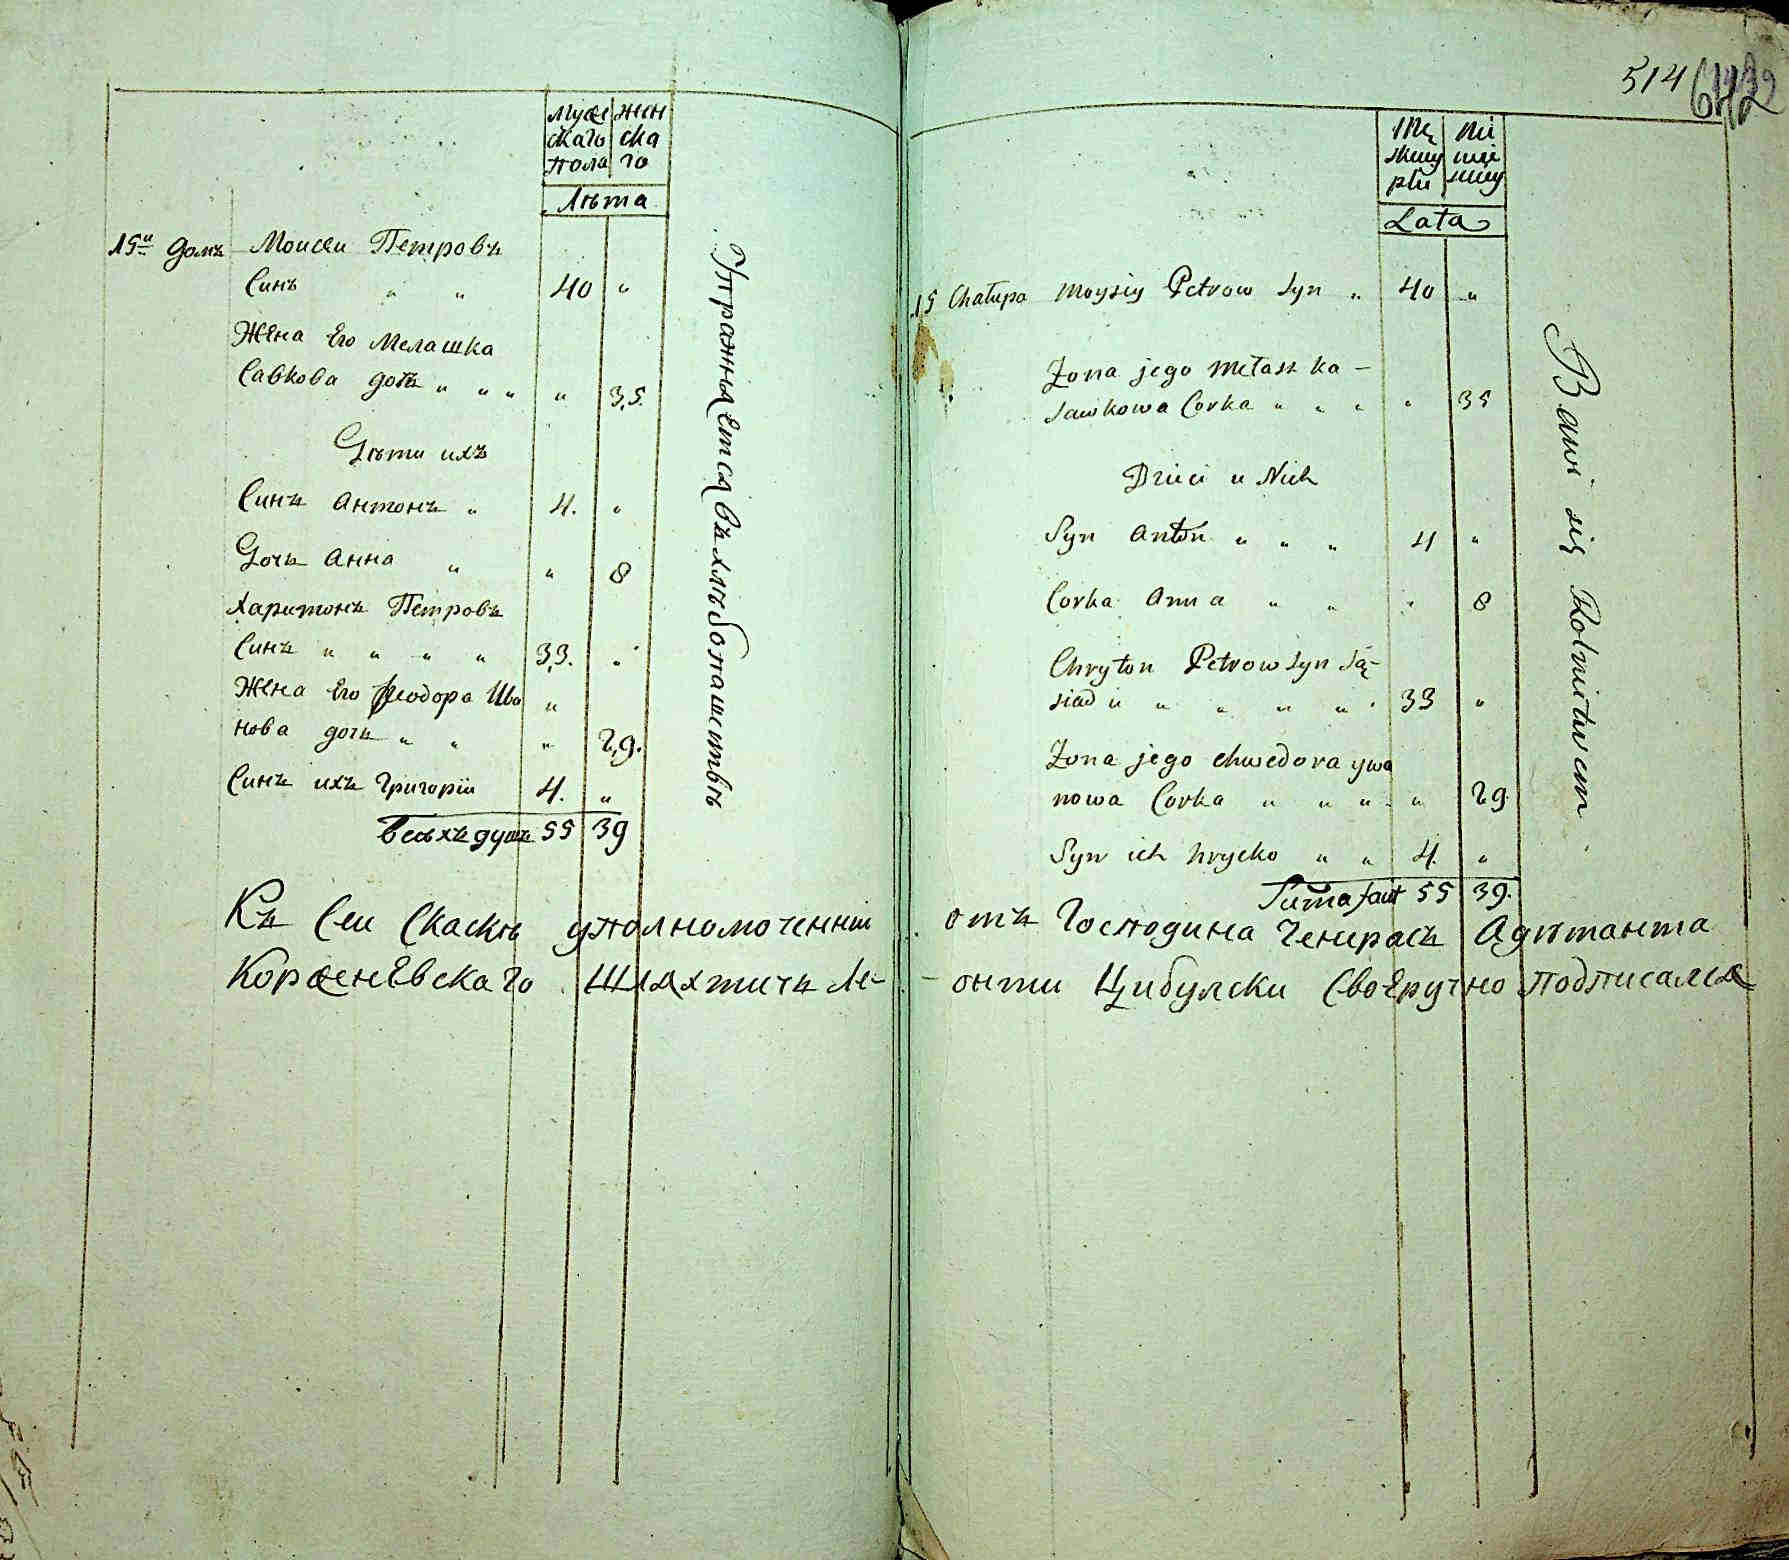 Мужескаго пола
женскаго
Лѣта
15й домъ Моисеи Петровъ
Синъ „ „ 40 „
Жена Его Мелашка
Савкова дочь „ „ „ „ 35.
Дѣти ихъ
Синъ Антонъ „ 4. „
Дочь Анна „ „ 8
Харитонъ Петровъ
Синъ „ „ „ „ 33. „
Жена Его Феодора Ива „
нова дочь „ „ „ 29.
Синъ ихъ Григории 4. „
Всѣхъ душъ 55 39
Упражняется въ хлѣбопашествѣ
Къ Сеи Скаскѣ уполномоченнии
Корженевскаго Шляхтичъ Ле-
514
Lata
15 Chałupa Moysiy Petrow Syn „ 40 „
Zona jego Mełaszka –
Sawkowa Corka „ „ „ „ 35
Dzieci u Nich
Syn Anton „ „ „ 4 „
Corka Anna „ „ „ 8
Chryton Petrow Syn Są-
siad u „ „ „ „ 33 „
Zona jego Chwedora ywa
nowa Corka „ „ „ „ 29.
Syn ich hrycko „ „ 4. „
Suma facit 55 39.
Bawi się Rolnictwem
отъ Господина Генерасъ Адютанта
-онти Цибулски Своеручно подписался